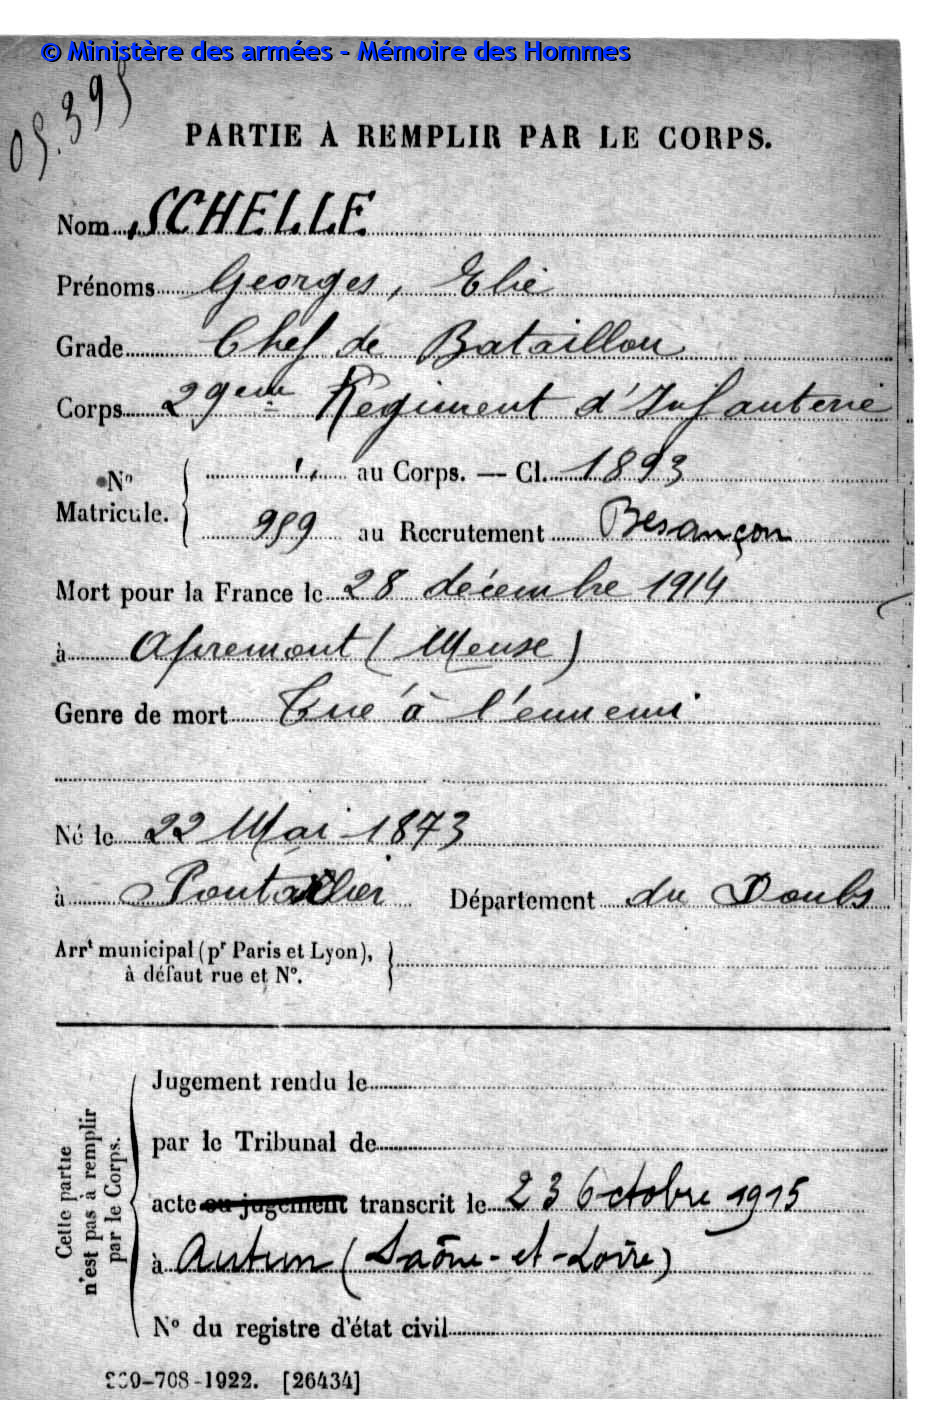 © Ministère des armées - Mémoire des Hommes
05.395
PARTIE À REMPLIR PAR LE CORPS.
Nom SCHELLE
Prénoms Georges, Elie
Grade Chef de Bataillon
Corps 29eme Régiment d'Infanterie
N° Matricule. { " au Corps. — Cl. 1893
959 au Recrutement Besançon
Mort pour la France le 28 décembre 1914
à Apremont (Meuse)
Genre de mort Tué à l'ennemi
Né le 22 Mai 1873
à Pontarlier Département du Doubs
Arrt municipal (pr Paris et Lyon),
à défaut rue et N°.
Cette partie
n'est pas à remplir
par le Corps.
Jugement rendu le
par le Tribunal de
acte ou jugement transcrit le 23 Octobre 1915
à Autun (Saône-et-Loire)
N° du registre d'état civil
-708-1922. [26434]